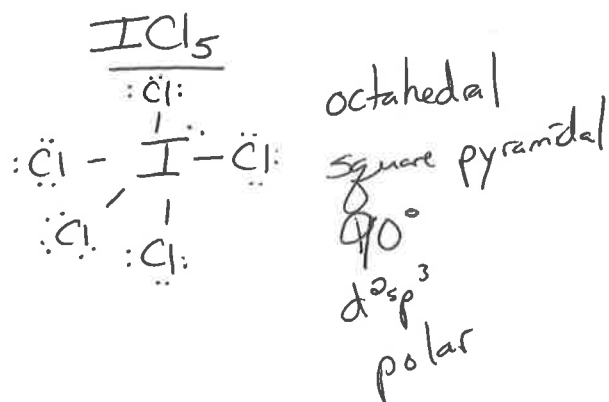 ICl₅
:C̈l:
:C̈l - I - C̈l:
:C̈l: :Cl:
octahedral
square pyramidal
90°
d²sp³
polar